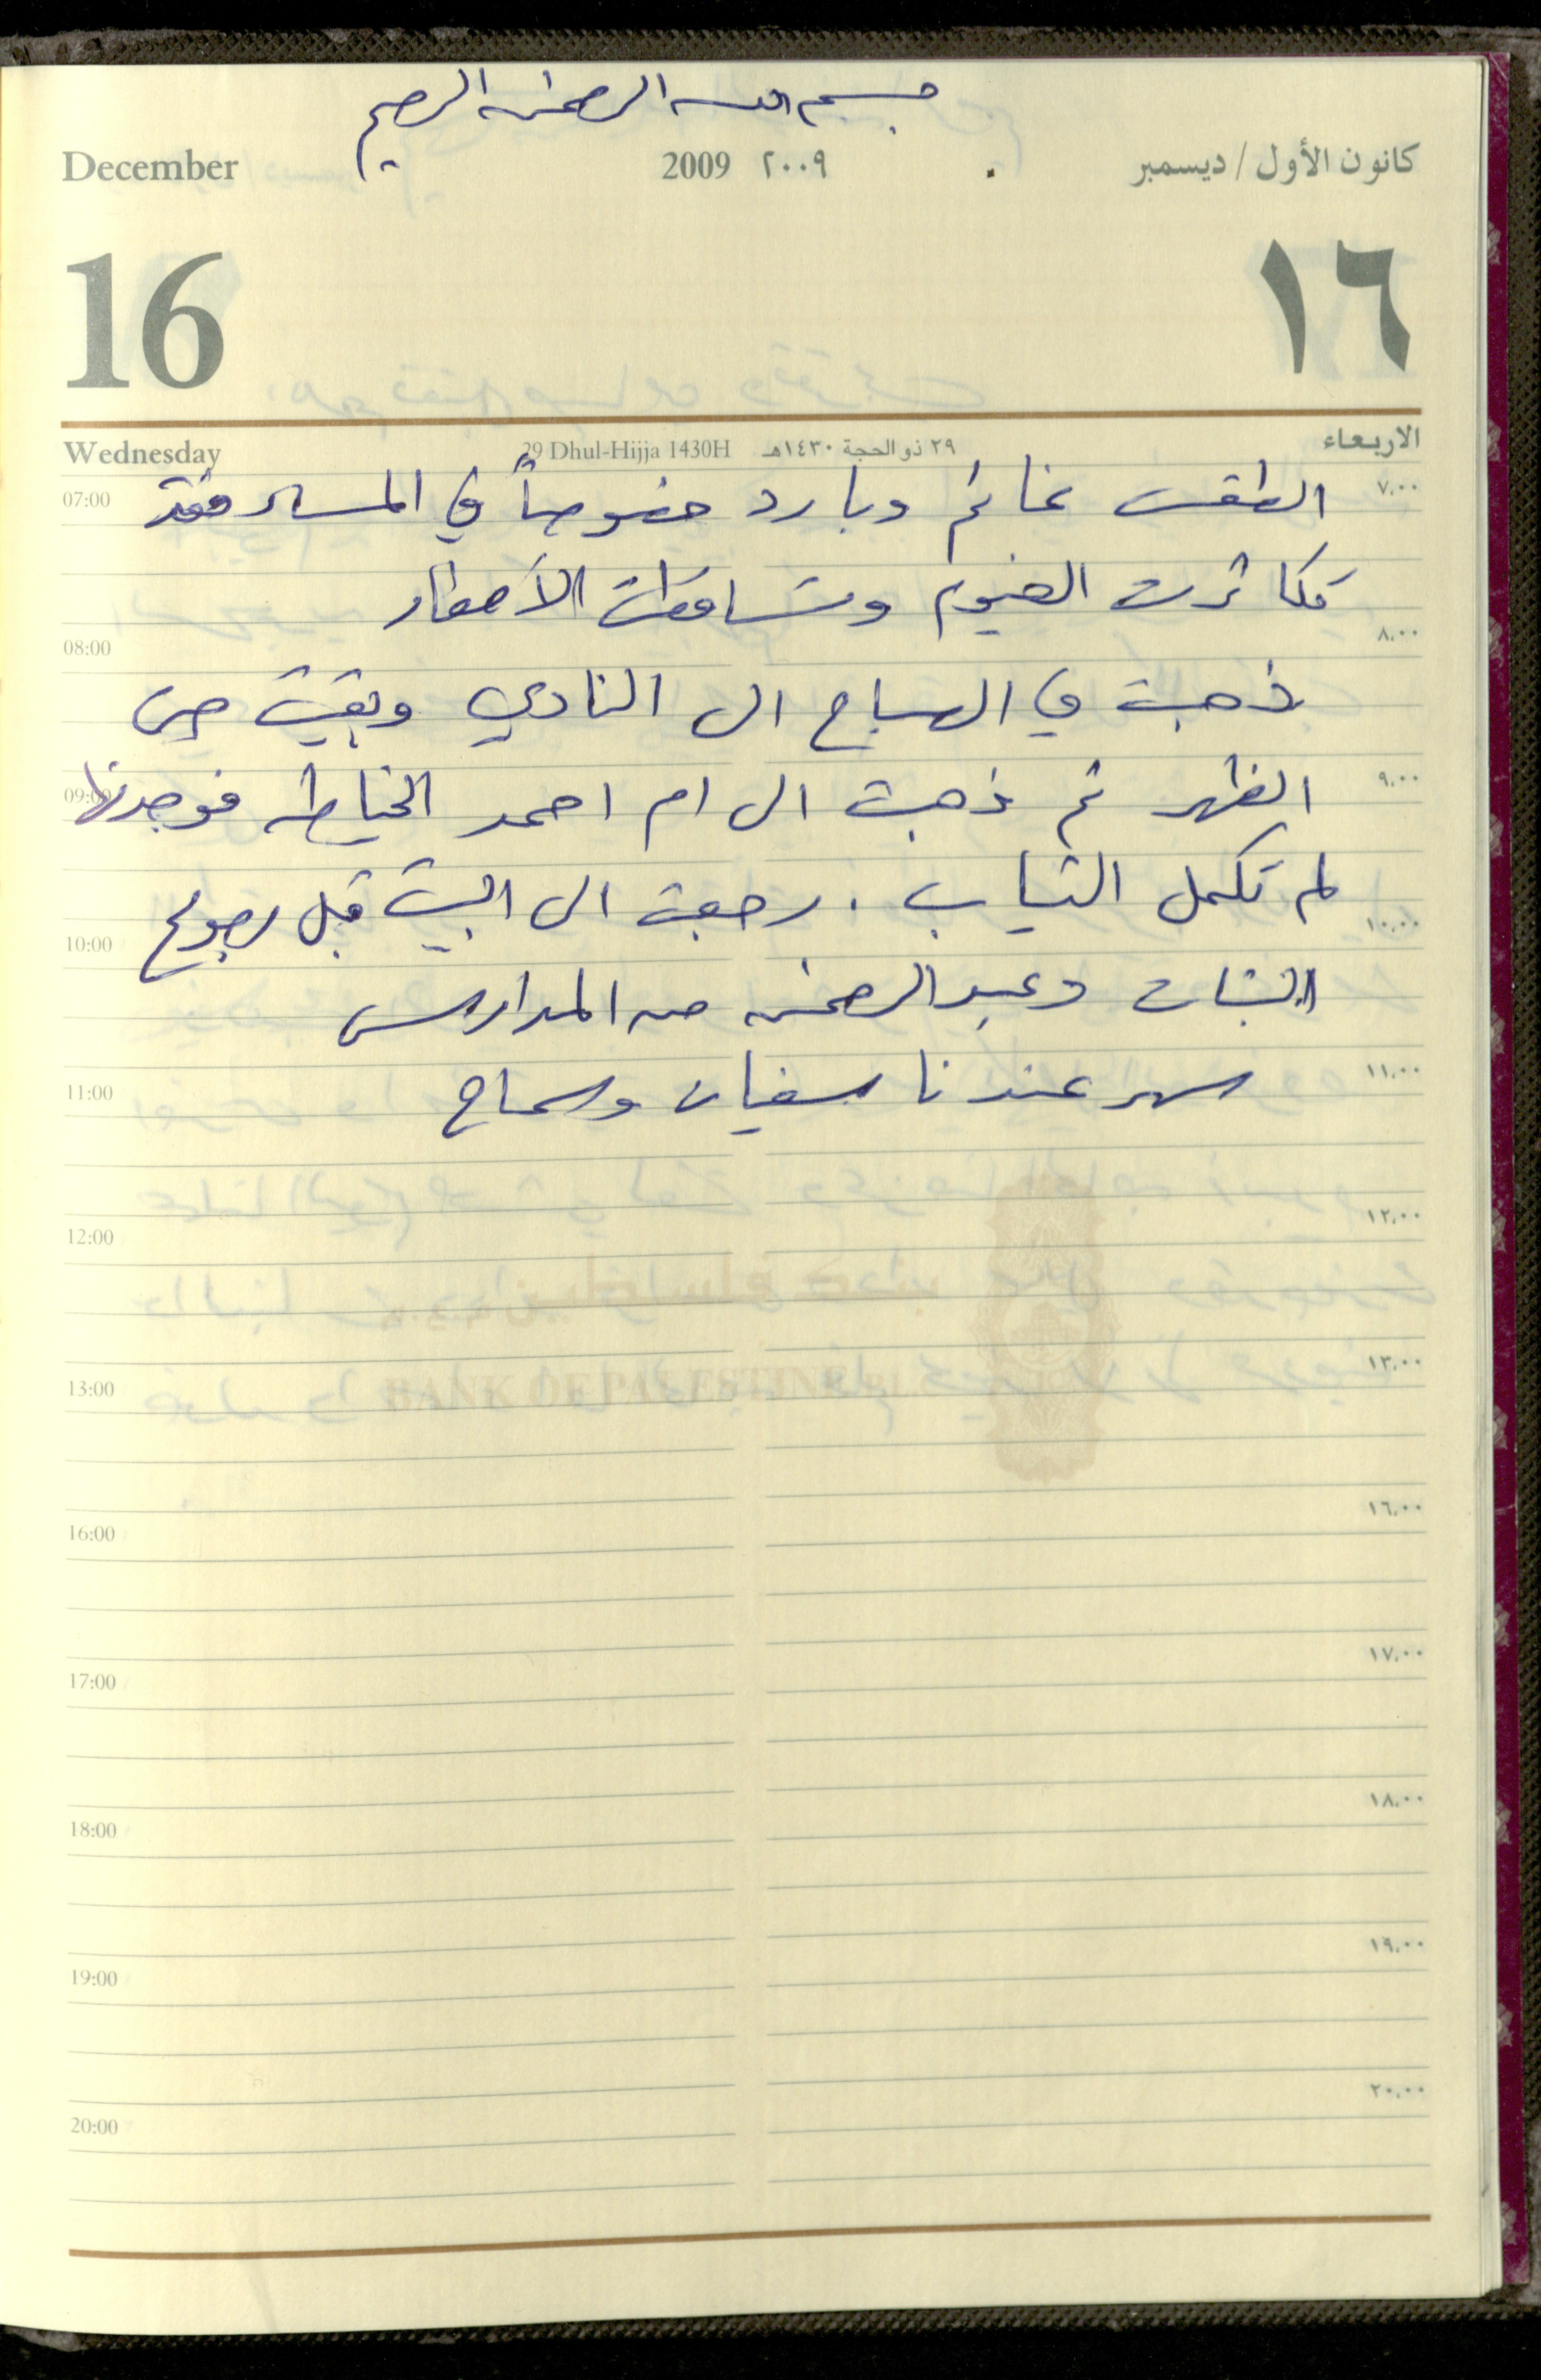 بسم الله الرحمن الرحيم
December 2009 ٢٠٠٩ كانون الأول / ديسمبر
16 ١٦
Wednesday 29 Dhul-Hijja 1430H ٢٩ ذو الحجة ١٤٣٠هـ الاربعاء
07:00 ٧,٠٠
الطقس غائم وبارد خصوصاً في المساء فقد
تكاثرت الغيوم وتساقطت الأمطار
08:00 ٨,٠٠
ذهبت في الصباح الى النادي وبقيت حتى
09:00 ٩,٠٠
الظهر ثم ذهبت الى ام احمد الخياطه فوجدتها
لم تكمل الثياب . رجعت الى البيت قبل رجوع
10:00 ١٠,٠٠
البنات وعبد الرحمن من المدارس
11:00 ١١,٠٠
سهر عندنا سفيان وسماح
12:00 ١٢,٠٠
BANK OF PALESTINE
13:00 ١٣,٠٠
16:00 ١٦,٠٠
17:00 ١٧,٠٠
18:00 ١٨,٠٠
19:00 ١٩,٠٠
20:00 ٢٠,٠٠